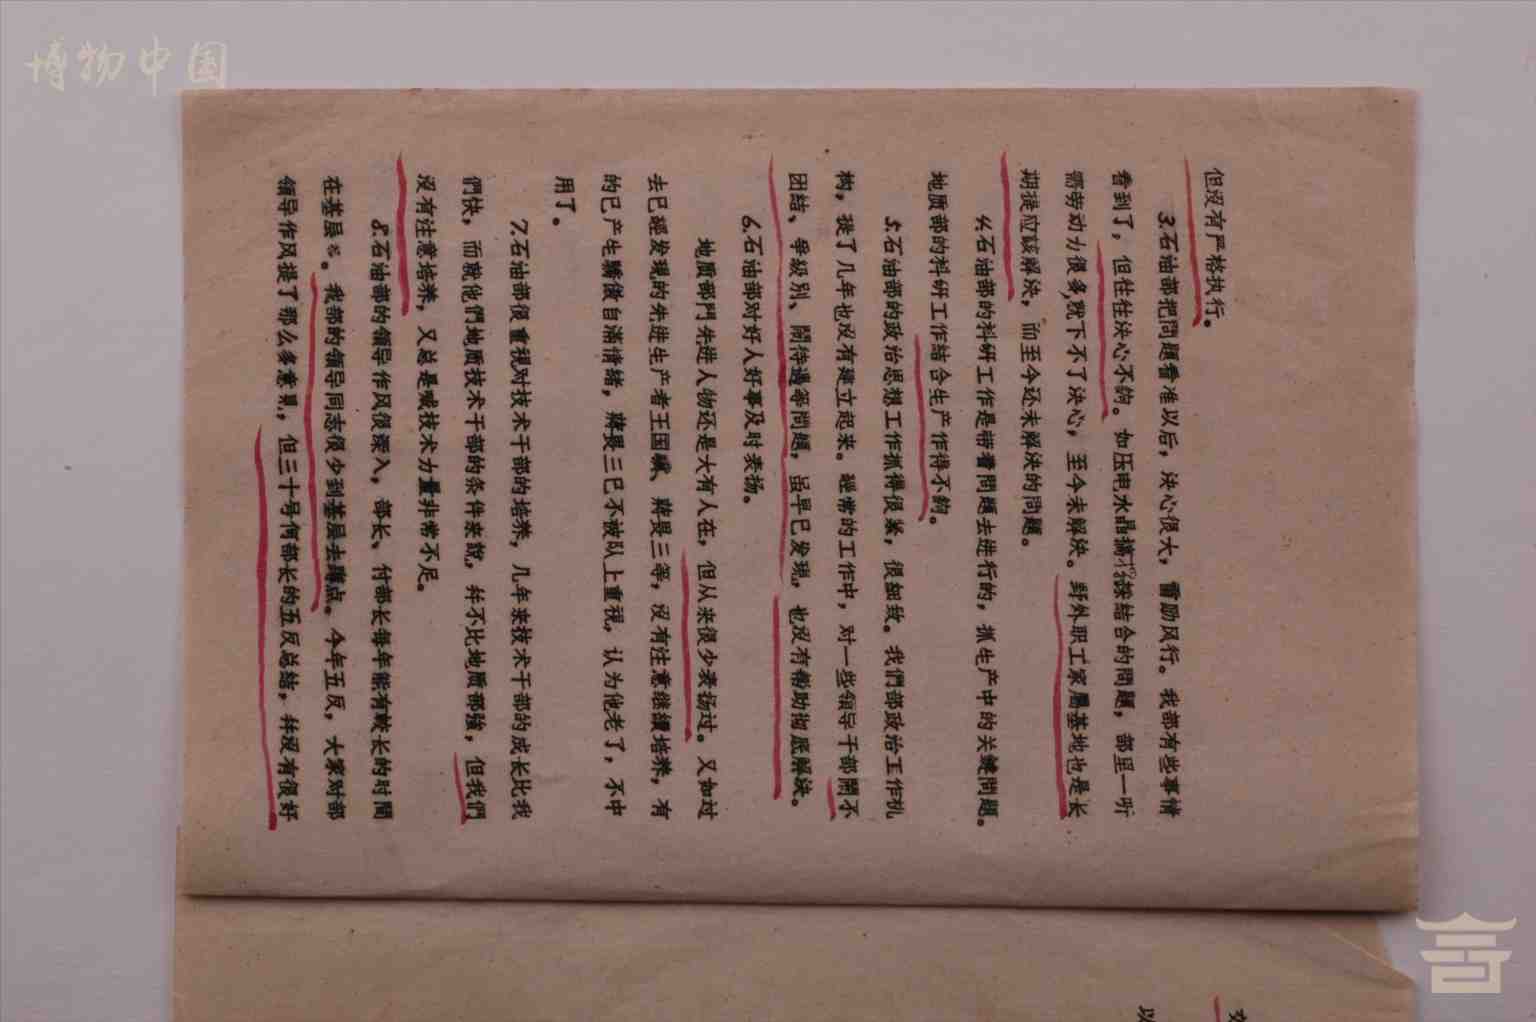 博物中国
但沒有严格执行。
3.石油部把問題看准以后，决心很大，雷励风行。我部有些事情
看到了，但往往决心不够。如压电水晶搞 探結合的問題，部里一听
需劳动力很多，就下不了决心，至今未解决。野外职工家屬基地也是长
期提应該解决，而至今还未解决的問題。
4.石油部的科研工作是带着問題去进行的，抓生产中的关鍵問題。
地质部的科研工作結合生产作得不夠。
5.石油部的政治思想工作抓得很紧，很細致。我們部政治工作机
构，提了几年也沒有建立起来。經常的工作中，对一些領导干部鬧不
团結、爭級別、鬧待遇等問題，虽早已发現，也沒有帮助彻底解决。
6.石油部对好人好事及时表扬。
地质部門先进人物还是大有人在，但从来很少表扬过。又如过
去已經发現的先进生产者王国 、蔣畏三等，沒有注意继續培养，有
的已产生驕傲自滿情緒，蔣畏三已不被队上重視，认为他老了，不中
用了。
7.石油部很重視对技术干部的培养，几年来技术干部的成长比我
們快，而就他們地质技术干部的条件来說，并不比地质部強，但我們
沒有注意培养，又总是喊技术力量非常不足。
8.石油部的領导作风很深入，部长、付部长每年能有較长的时間
在基层 。我部的領导同志很少到基层去蹲点。今年五反，大家对部
領导作风提了那么多意見，但三十号何部长的五反总結，并沒有很好
以